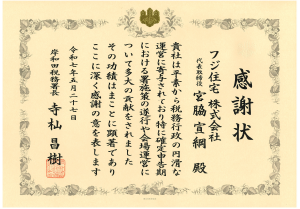 感謝状
フジ住宅 株式会社
代表取締役 宮脇宣綱 殿
貴社は平素から税務行政の円滑な
運営に寄与されており特に確定申告期
における署施策の遂行や会場運営に
ついて多大の貢献をされました
その功績はまことに顕著であり
ここに深く感謝の意を表します
令和七年五月二十七日
岸和田税務署長 寺杣昌樹